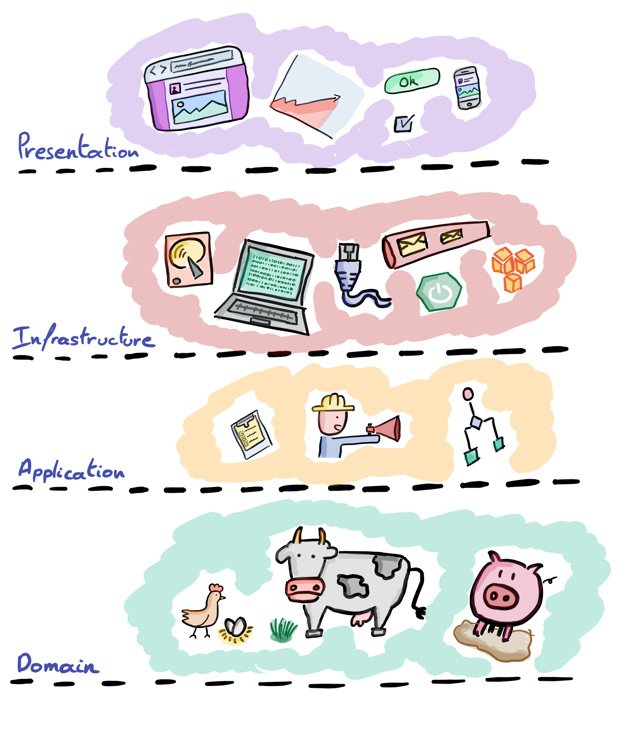 Ok
Presentation
Infrastructure
Application
Domain